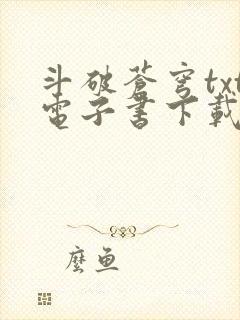 斗破蒼穹txt
電子書下載
麼魚